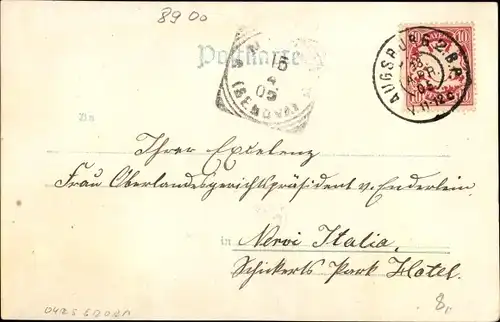 8900
Postkarte
15
4
05
(GENOVA)
AUGSBURG 2. B.P.
APR.
10
An
Ihrer Exzelenz
Frau Oberlandesgerichtspräsident v. Enderlein.
in Nervi Italia,
Schickerts Park Hotel.
8,